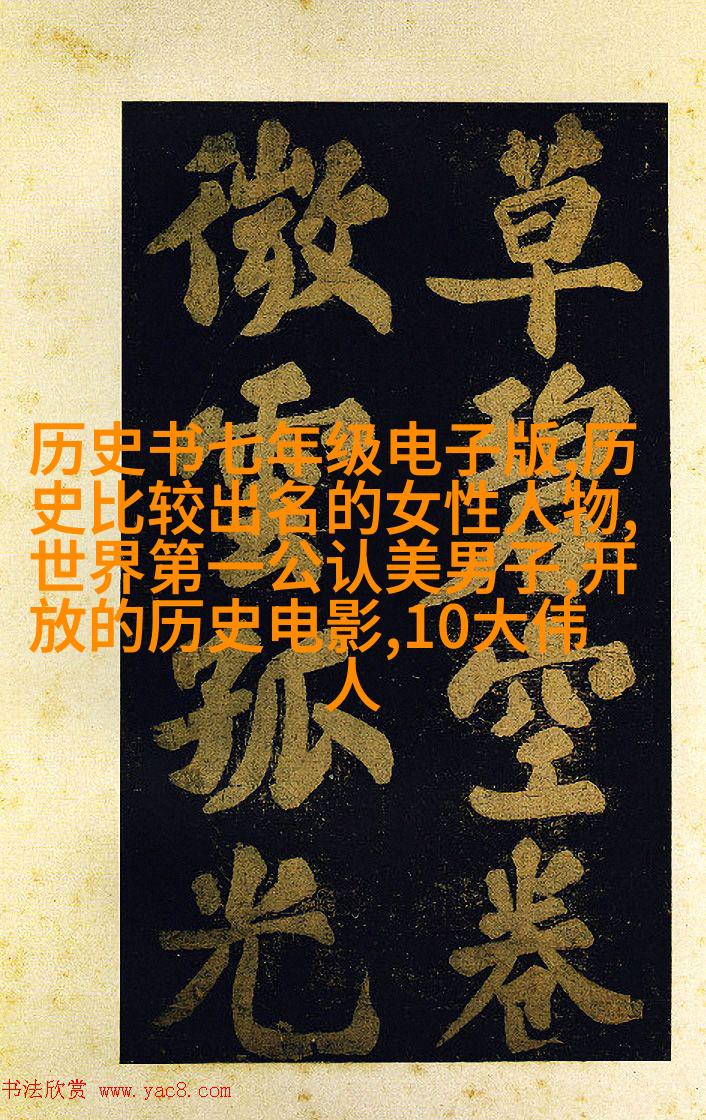 草碧空卷
微雲孤光
历史书七年级电子版,历
史比较出名的女性人物,
世界第一公认美男子,开
放的历史电影,10大伟
人
书法欣赏 www.yac8.com